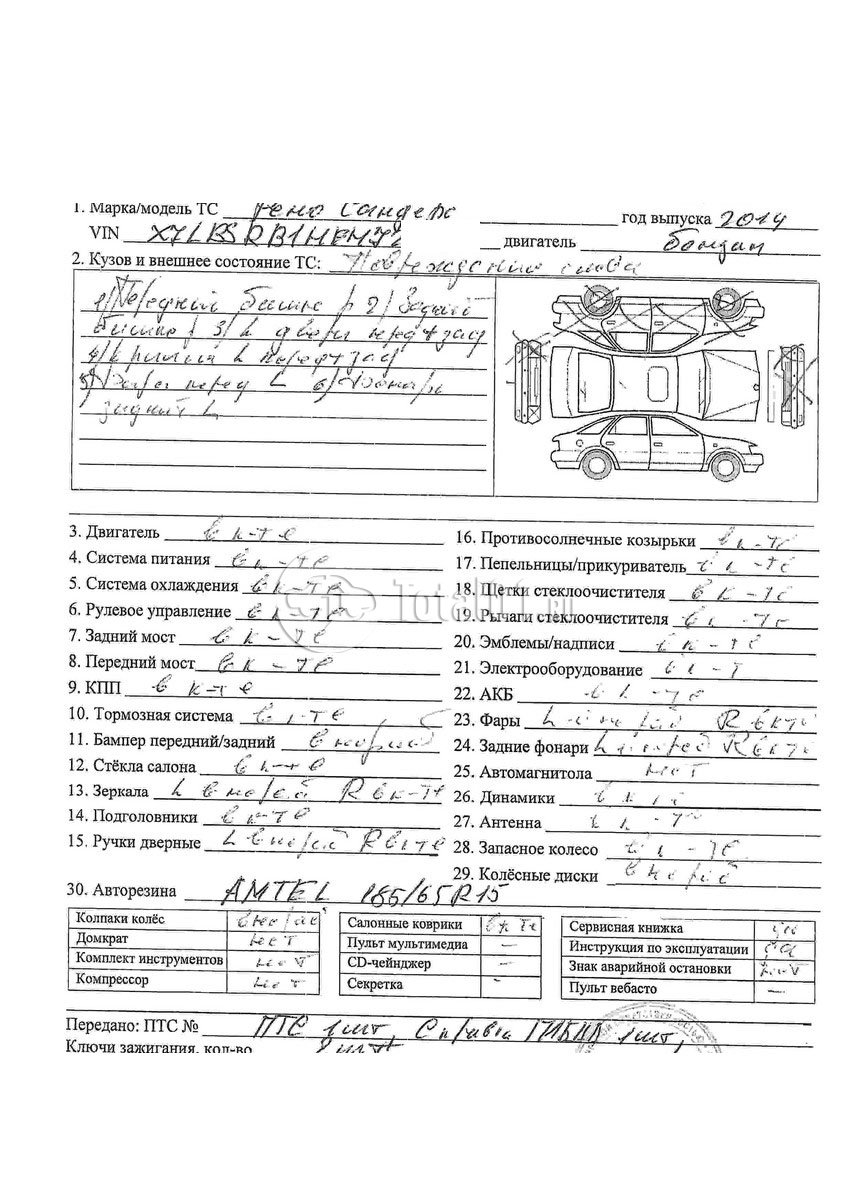 1. Марка/модель ТС Рено Сандеро год выпуска 2014
VIN двигатель бензин
2. Кузов и внешнее состояние ТС: Повреждения слева
1) Передний бампер 2) Задний
бампер 3) L двери перед+зад
4) крылья L перед+зад
5) Фара перед L 6) Фонарь
задний L
3. Двигатель в к-те
4. Система питания в к-те
5. Система охлаждения в к-те
6. Рулевое управление в к-те
7. Задний мост в к-те
8. Передний мост в к-те
9. КПП в к-те
10. Тормозная система в к-те
11. Бампер передний/задний
12. Стёкла салона в к-те
13. Зеркала L R в к-те
14. Подголовники в к-те
15. Ручки дверные L R в к-те
16. Противосолнечные козырьки в к-те
17. Пепельницы/прикуриватель в к-те
18. Щетки стеклоочистителя в к-те
19. Рычаги стеклоочистителя в к-те
20. Эмблемы/надписи в к-те
21. Электрооборудование в к-т
22. АКБ в к-те
23. Фары L R в к-те
24. Задние фонари L R в к-те
25. Автомагнитола нет
26. Динамики в к-те
27. Антенна в к-те
28. Запасное колесо в к-те
29. Колёсные диски
30. Авторезина AMTEL 185/65 R15
Колпаки колёс
Домкрат нет
Комплект инструментов нет
Компрессор нет
Салонные коврики в к-те
Пульт мультимедиа –
CD-чейнджер –
Секретка -
Сервисная книжка
Инструкция по эксплуатации
Знак аварийной остановки нет
Пульт вебасто –
Total01.ru
Передано: ПТС № ПТС 1 шт, Справка ГИБДД 1 шт,
Ключи зажигания, кол-во шт